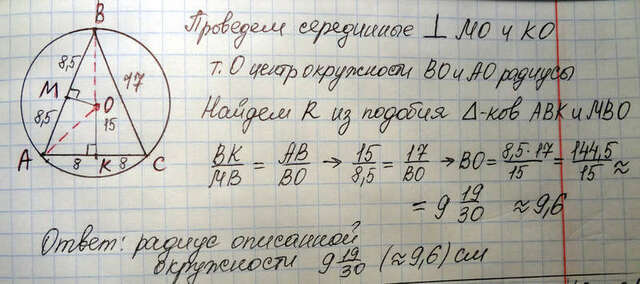 B
8,5
17
M
O
8,5
15
A
8
K
8
C
Проведем серединные ⊥ МО и КО
т. О центр окружности ВО и АО радиусы
Найдем R из подобия Δ-ков АВК и МВО
BK/MB = AB/BO → 15/8,5 = 17/BO → BO = 8,5·17/15 = 144,5/15 ≈
= 9 19/30 ≈ 9,6
Ответ: радиус описанной
окружности 9 19/30 (≈ 9,6) см